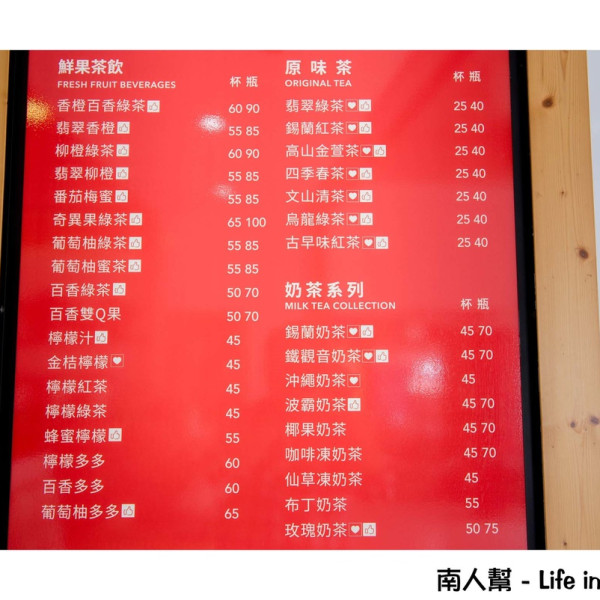 鮮果茶飲 杯 瓶
FRESH FRUIT BEVERAGES
香橙百香綠茶 60 90
翡翠香橙 55 85
柳橙綠茶 60 90
翡翠柳橙 55 85
番茄梅蜜 55 85
奇異果綠茶 65 100
葡萄柚綠茶 55 85
葡萄柚蜜茶 55 85
百香綠茶 50 70
百香雙Q果 50 70
檸檬汁 45
金桔檸檬 45
檸檬紅茶 45
檸檬綠茶 45
蜂蜜檸檬 55
檸檬多多 60
百香多多 60
葡萄柚多多 65
原味茶 杯 瓶
ORIGINAL TEA
翡翠綠茶 25 40
錫蘭紅茶 25 40
高山金萱茶 25 40
四季春茶 25 40
文山清茶 25 40
烏龍綠茶 25 40
古早味紅茶 25 40
奶茶系列 杯 瓶
MILK TEA COLLECTION
錫蘭奶茶 45 70
鐵觀音奶茶 45 70
沖繩奶茶 45
波霸奶茶 45 70
椰果奶茶 45 70
咖啡凍奶茶 45 70
仙草凍奶茶 45
布丁奶茶 55
玫瑰奶茶 50 75
南人幫 - Life in